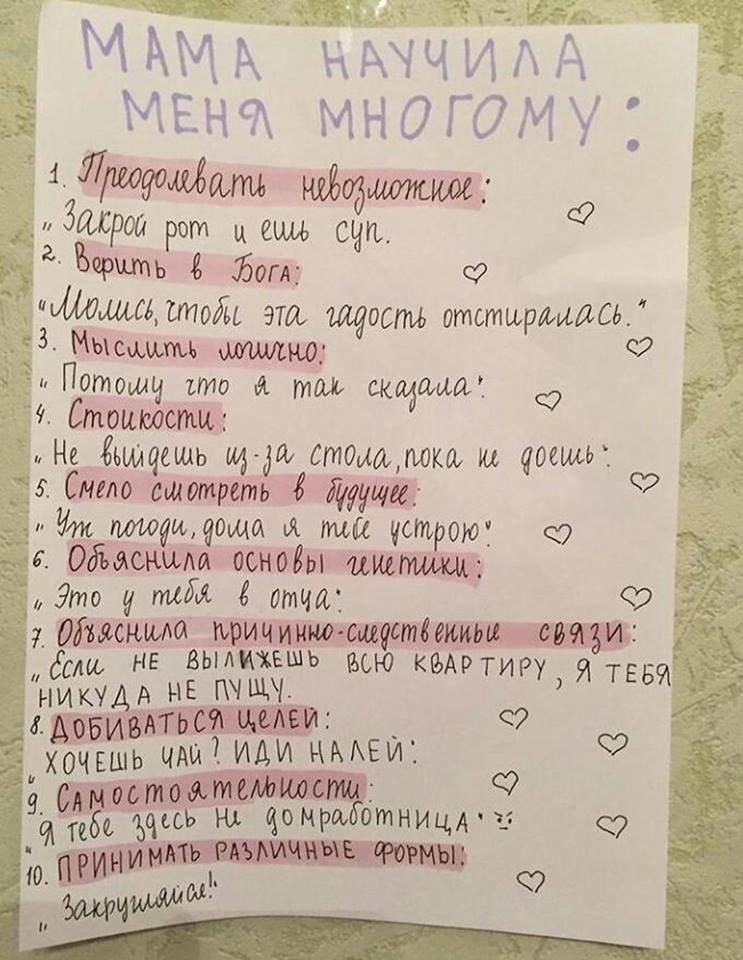 МАМА НАУЧИЛА
МЕНЯ МНОГОМУ:
1. Преодолевать невозможное:
„Закрой рот и ешь суп.
2. Верить в Бога:
"Молись, чтобы эта гадость отстиралась."
3. Мыслить логично:
„Потому что я так сказала"
4. Стойкости:
„Не выйдешь из-за стола, пока не доешь"
5. Смело смотреть в будущее:
„Уж погоди, дома я тебе устрою"
6. Объяснила основы генетики:
„Это у тебя в отца"
7. Объяснила причинно-следственные связи:
„Если НЕ ВЫЛИЖЕШЬ ВСЮ КВАРТИРУ, Я ТЕБЯ
НИКУДА НЕ ПУЩУ.
8. ДОБИВАТЬСЯ ЦЕЛЕЙ:
„ХОЧЕШЬ ЧАЙ? ИДИ НАЛЕЙ"
9. САМОСТОЯТЕЛЬНОСТИ:
„Я тебе здесь не домработница"
10. ПРИНИМАТЬ РАЗЛИЧНЫЕ ФОРМЫ:
„Закругляйся!"